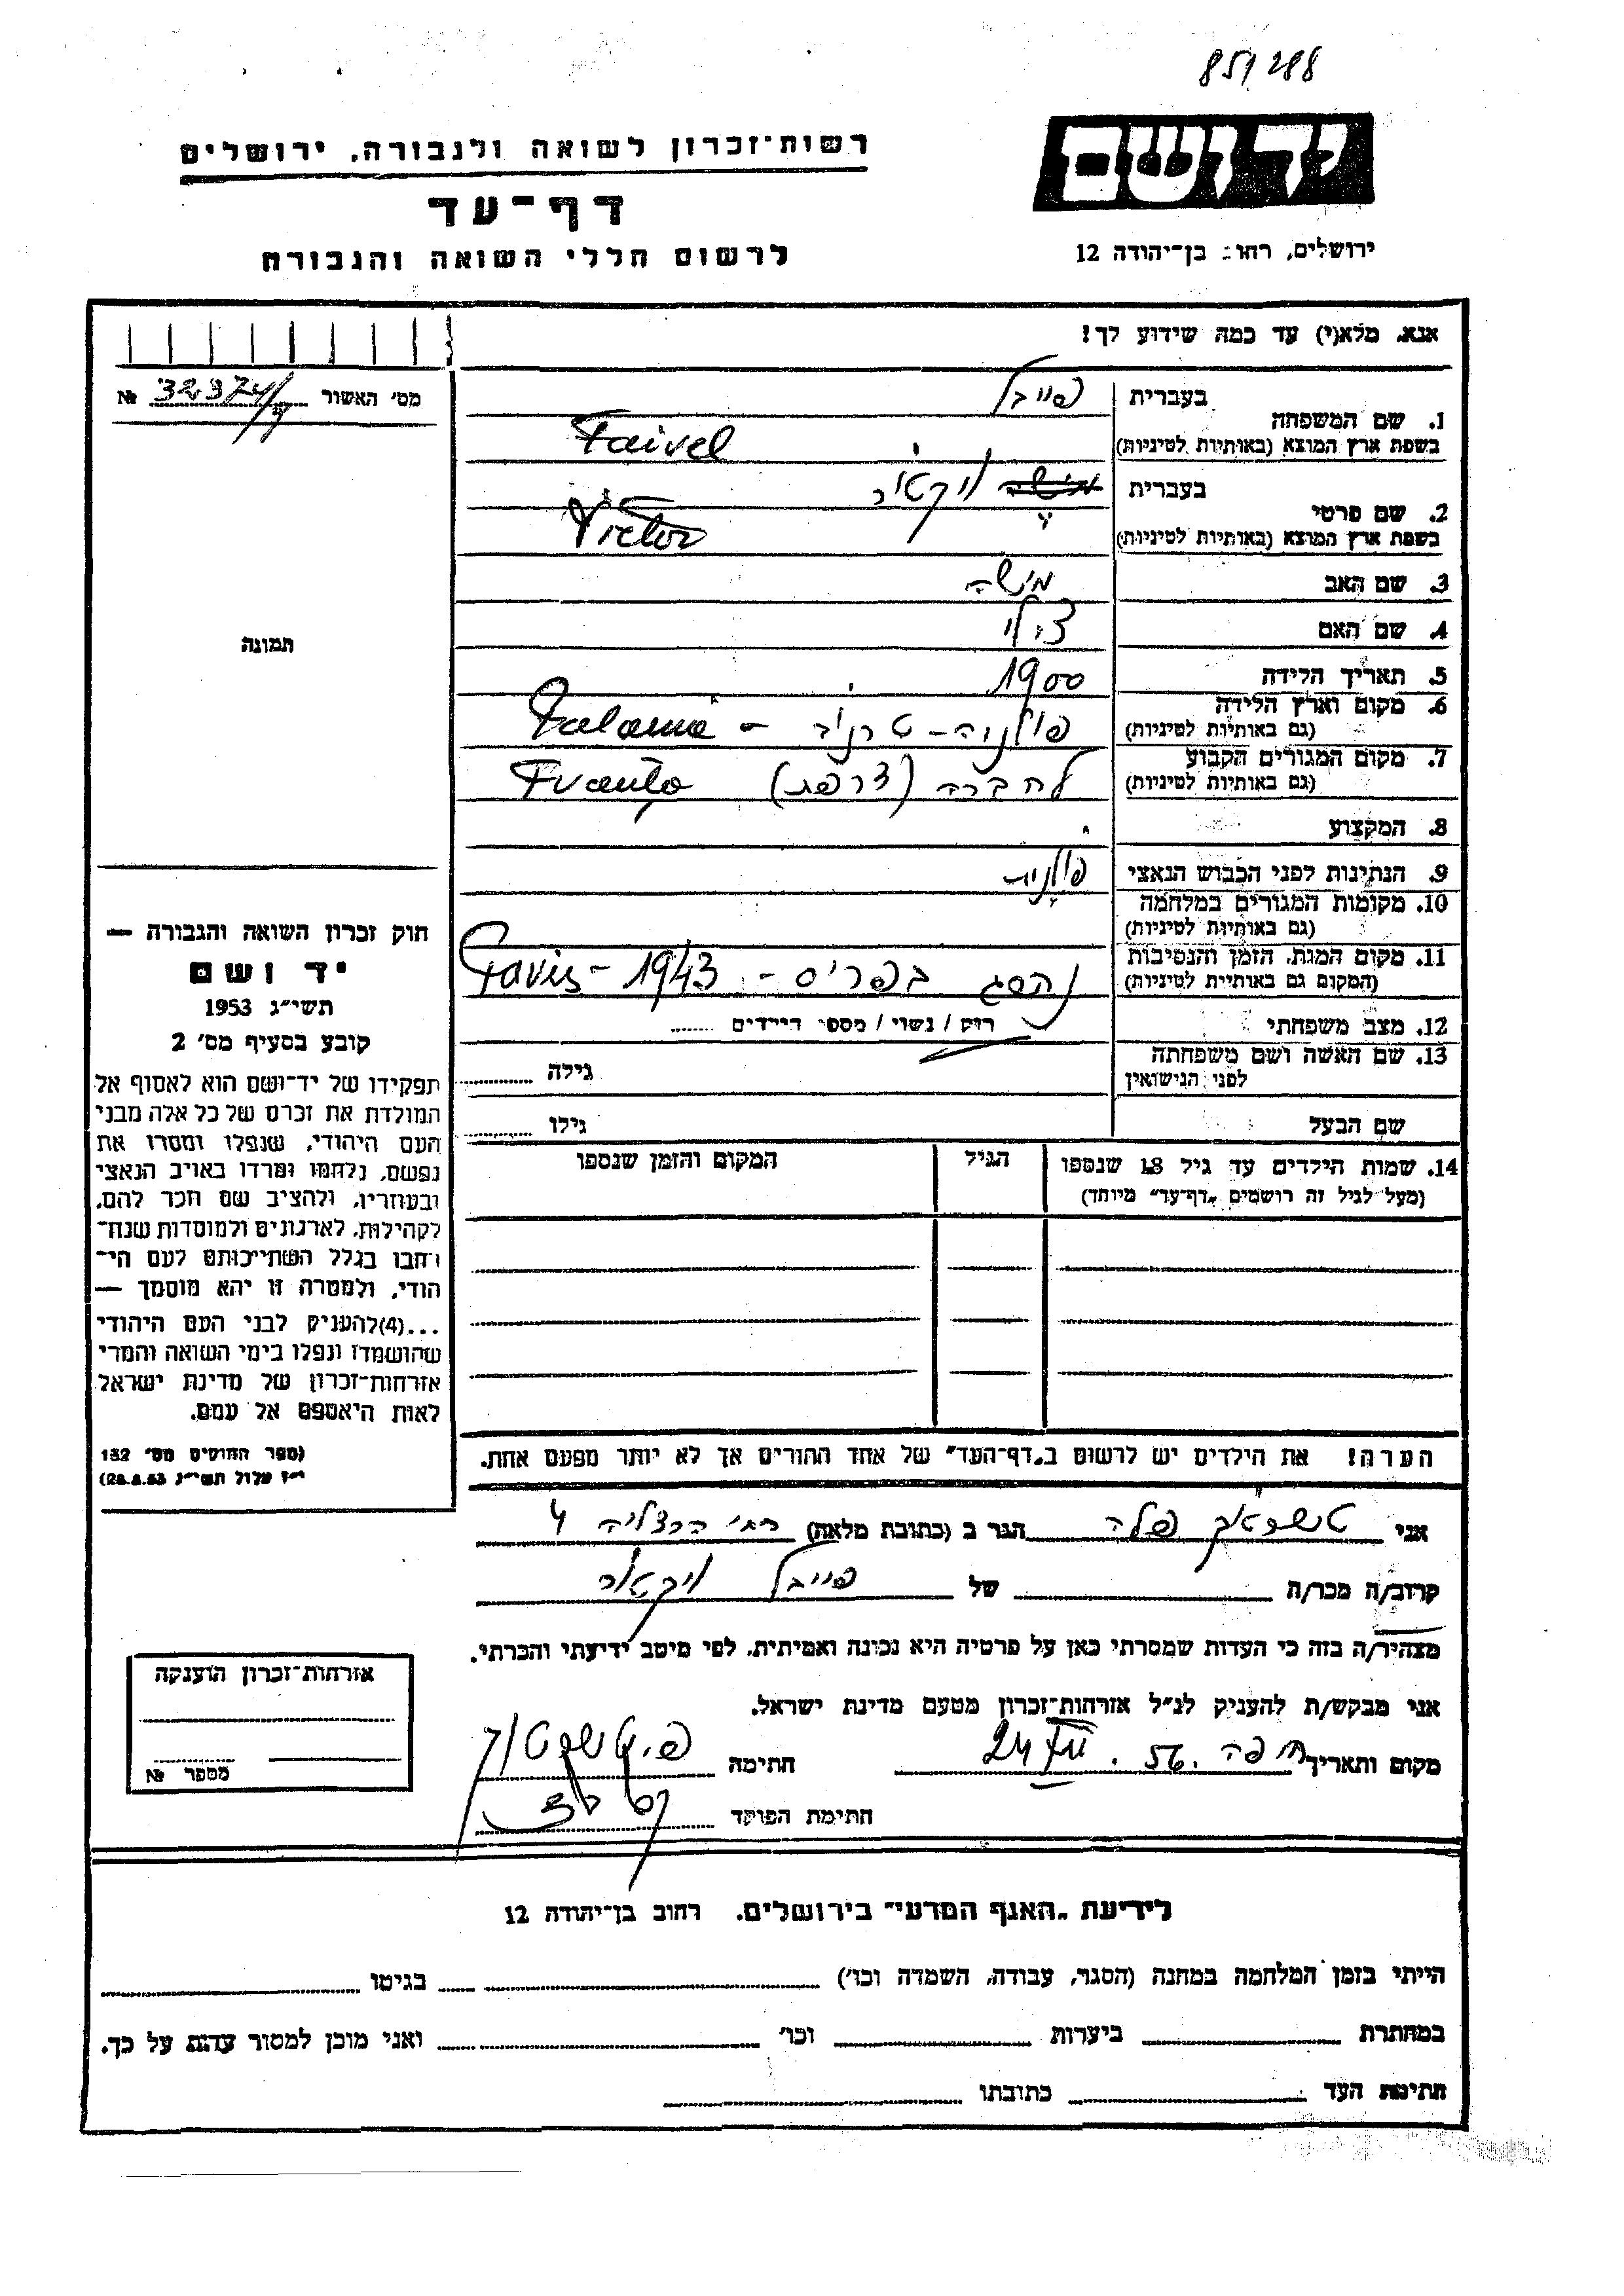 851288
רשות־זכרון לשואה ולגבורה, ירושלים
יד ושם
דף־עד
לרשום חללי השואה והגבורה
ירושלים, רחוב בן־יהודה 12
אנא, מלא(י) עד כמה שידוע לך!
מס' האשור № 32374/
1. שם המשפחה
בעברית פייבל
בשפת ארץ המוצא (באותיות לטיניות) Faivel
2. שם פרטי
בעברית ויקטור
בשפת ארץ המוצא (באותיות לטיניות) Victor
3. שם האב מישה
4. שם האם צילי
5. תאריך הלידה 1900
6. מקום וארץ הלידה
(גם באותיות לטיניות) פולניה - טרנוב -
7. מקום המגורים הקבוע
(גם באותיות לטיניות) (צרפת)
8. המקצוע
9. הנתינות לפני הכבוש הנאצי פולנית
10. מקומות המגורים במלחמה
(גם באותיות לטיניות)
11. מקום המות, הזמן והנסיבות
(המקום גם באותיות לטיניות) נהרג בפריס - 1943 - Paris
12. מצב משפחתי רווק / נשוי / מספר הילדים
13. שם האשה ושם משפחתה
לפני הנישואין גילה
שם הבעל גילו
14. שמות הילדים עד גיל 18 שנספו
(מעל לגיל זה רושמים "דף־עד" מיוחד)
הגיל
המקום והזמן שנספו
תמונה
חוק זכרון השואה והגבורה —
יד ושם
תשי"ג 1953
קובע בסעיף מס' 2
תפקידו של יד־ושם הוא לאסוף אל
המולדת את זכרם של כל אלה מבני
העם היהודי, שנפלו ומסרו את
נפשם, נלחמו ומרדו באויב הנאצי
ובעוזריו, ולהציב שם וזכר להם,
לקהילות, לארגונים ולמוסדות שנח־
רבו בגלל השתייכותם לעם הי־
הודי, ולמטרה זו יהא מוסמך —
...(4)להעניק לבני העם היהודי
שהושמדו ונפלו בימי השואה והמרי
אזרחות־זכרון של מדינת ישראל
לאות היאספם אל עמם.
(ספר החוקים מס' 132
י"ז אלול תשי"ג 28.8.53)
הערה! את הילדים יש לרשום ב"דף־העד" של אחד ההורים אך לא יותר מפעם אחת.
אני פלה הגר ב (כתובת מלאה) רח' הרצליה 4
קרוב/ה מכר/ה של פייבל ויקטור
מצהיר/ה בזה כי העדות שמסרתי כאן על פרטיה היא נכונה ואמיתית, לפי מיטב ידיעתי והכרתי.
אני מבקש/ת להעניק לנ"ל אזרחות־זכרון מטעם מדינת ישראל.
מקום ותאריך חיפה .56 חתימה
חתימת הפוקד
אזרחות־זכרון הוענקה
מספר №
לידיעת "האגף המדעי" בירושלים, רחוב בן־יהודה 12
הייתי בזמן המלחמה במחנה (הסגר, עבודה, השמדה וכו') בגיטו
במחתרת ביערות וכו' ואני מוכן למסור עדות על כך.
חתימת העד כתובתו